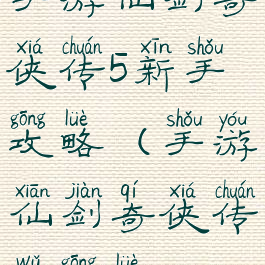 手游仙剑奇
xiá chuán xīn shǒu
侠传5新手
gōng lüè shǒu yóu
攻略（手游
xiān jiàn qí xiá chuán
仙剑奇侠传
wǔ gōng lüè